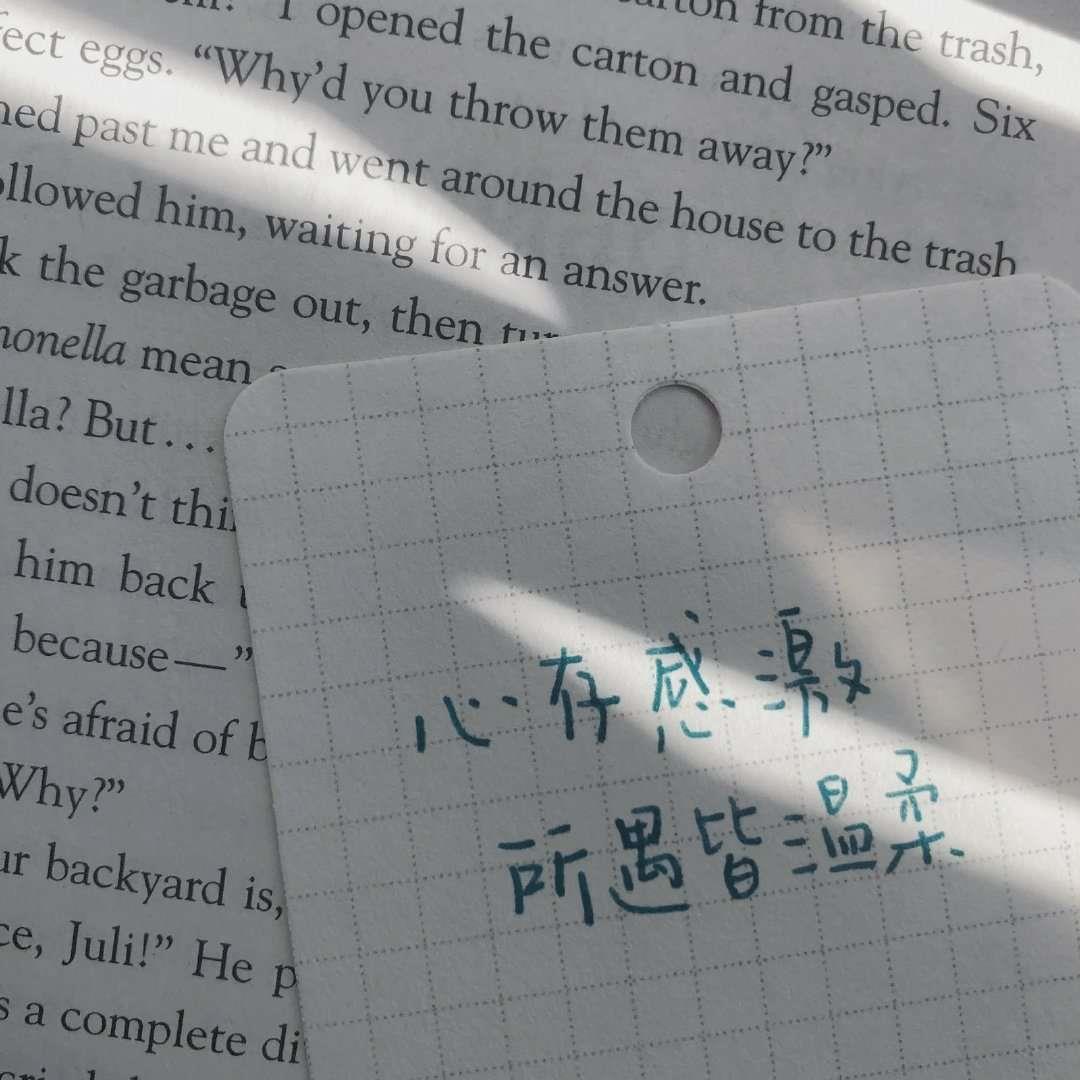 I opened the carton and gasped. Six
eggs. “Why’d you throw them away?”
past me and went around the house to the trash
him, waiting for an answer.
the garbage out, then
mean
But...
doesn’t
him back
because—”
afraid of
Why?”
backyard is,
Juli!” He
a complete
from the trash,
心存感激
所遇皆温柔